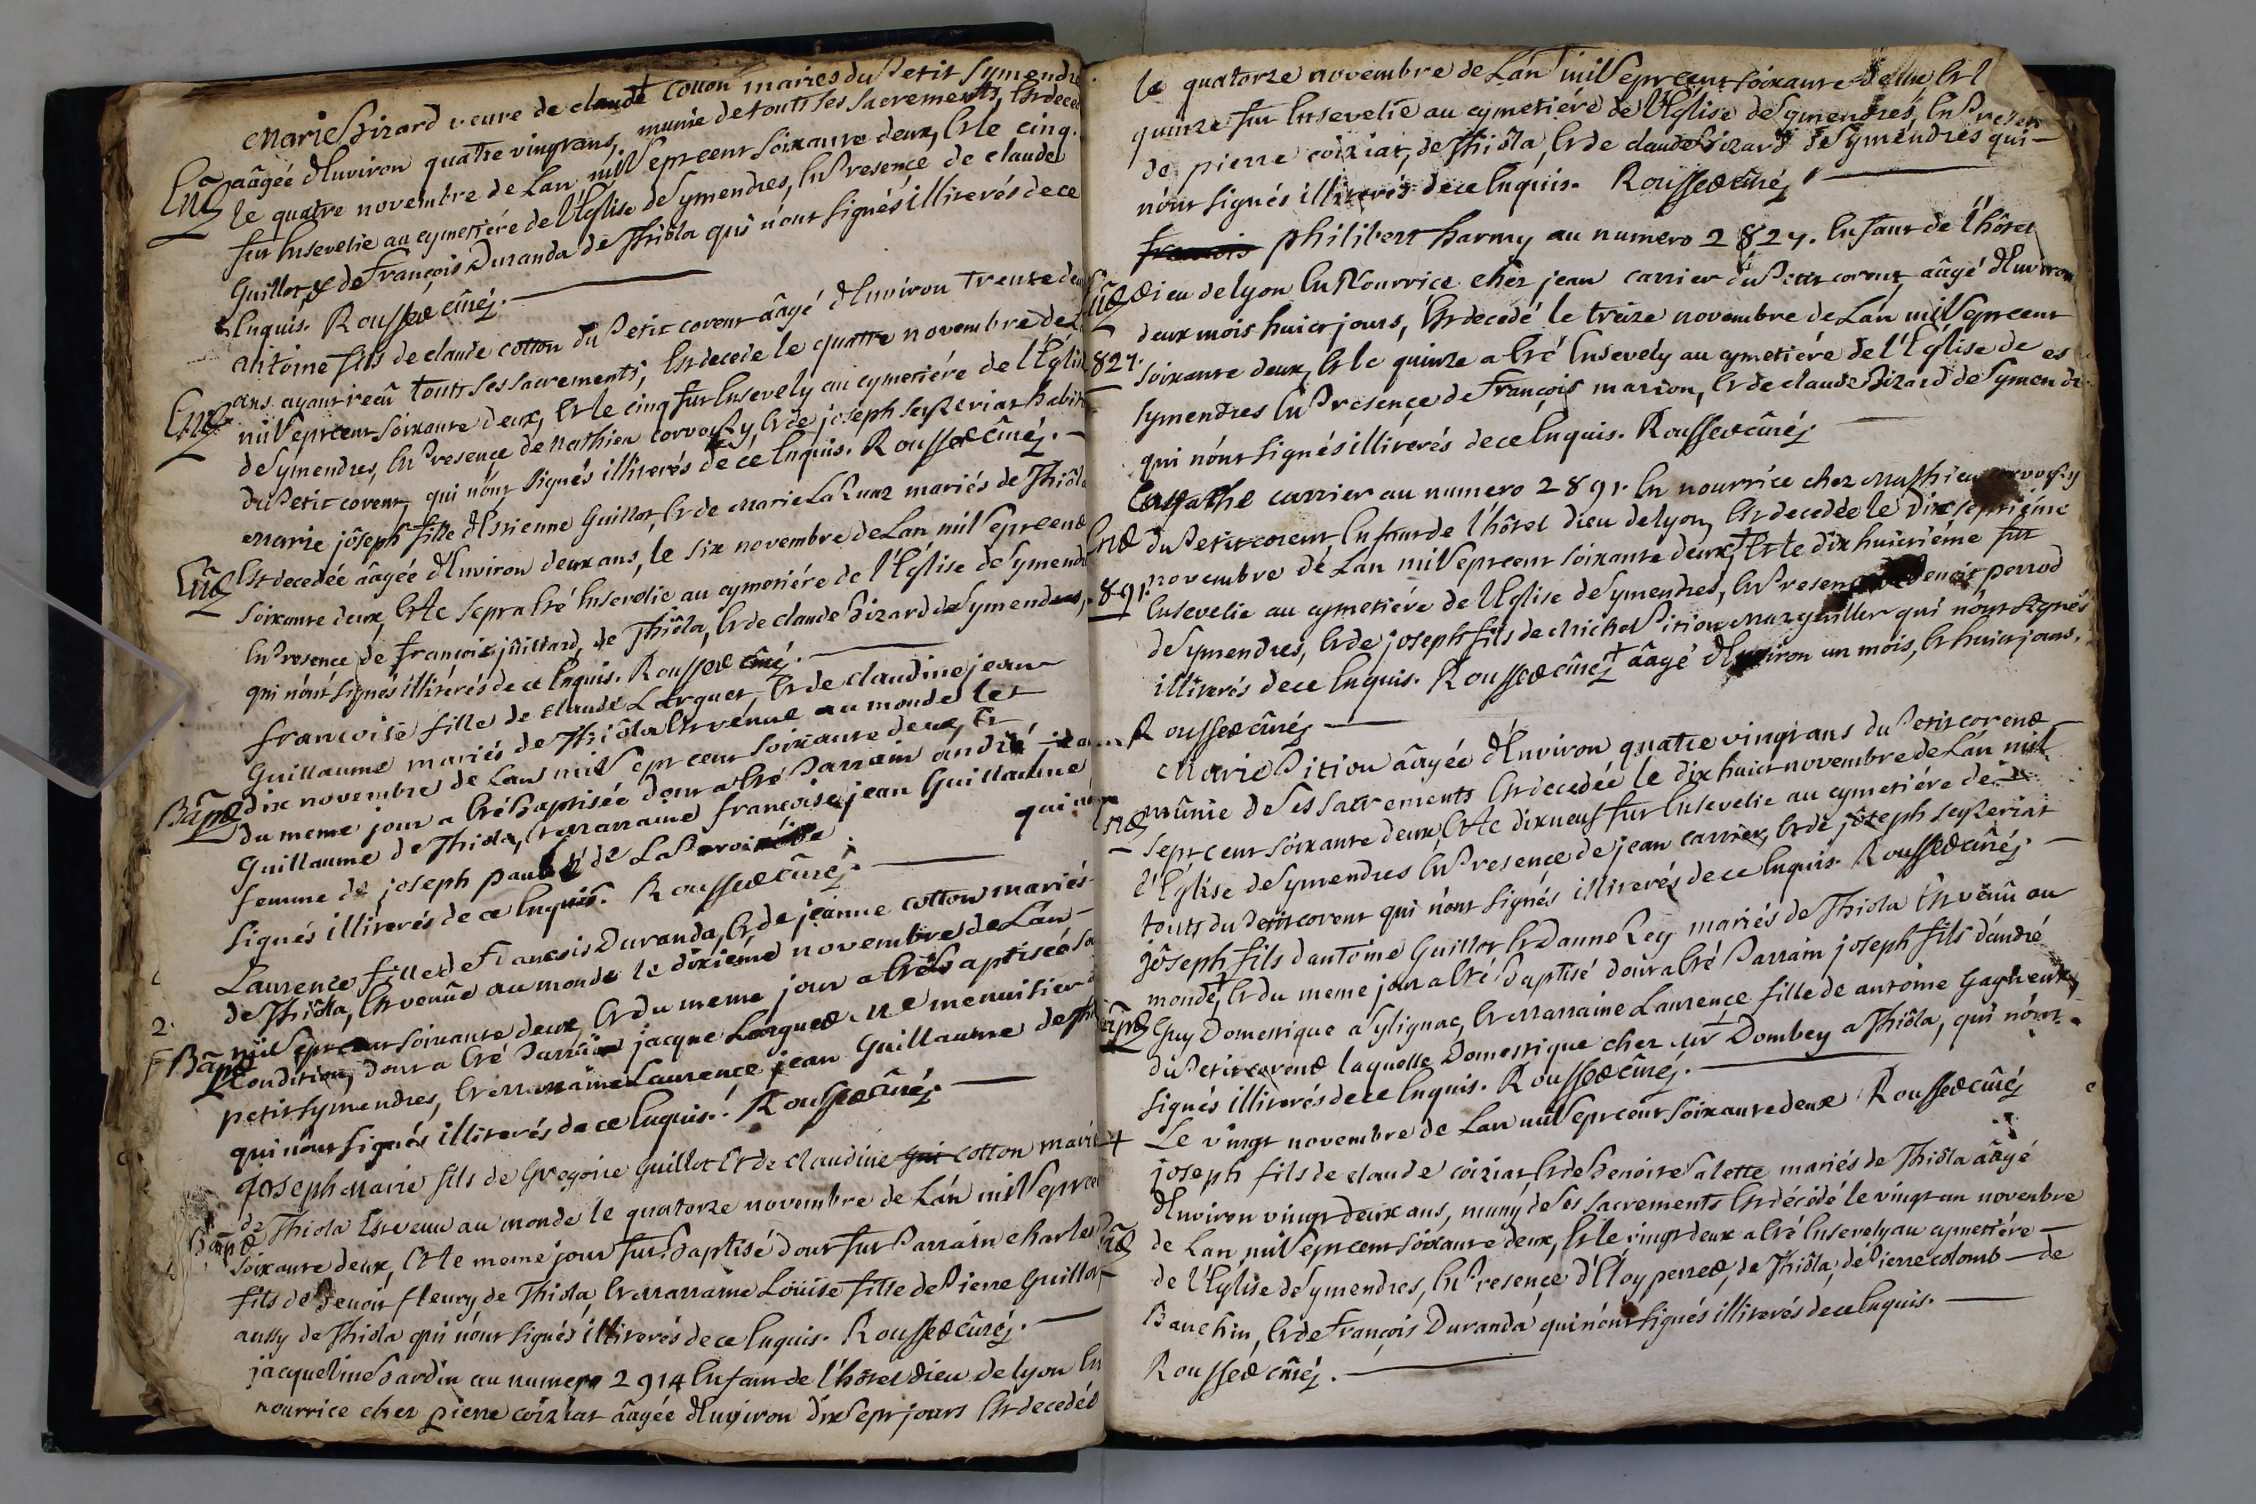 Marie Bizard veuve de claude Cotton maries du Petit Symendre
âagée d'Environ quatre vingt ans, munie de touts ses sacrements, Est decedée
Ent
le quatre novembre de Lan mil Sept cent soixante deux, Et le cinq.
fut Ensevelie au cymetiére de l'Eglise de Symendres, En Presence de claude
Guillot, & de François Duranda de Thiôla qui n'ont signés illiterés de ce
Enquis. Rousset Curé.
antoine fils de claude cotton du Petit corent âagé d'Environ trente deux
ans ayant recû touts ses sacrements, Est decedé le quatre novembre de Lan
Ent
mil Sept cent soixante deux, Et le cinq fut Ensevely au cymetiére de l'Eglise
de Symendres, En Presence de mathieu corvoysy, Et de joseph seyzeriat habit
du Petit corent, qui n'ont signés illiterés de ce Enquis. Rousset Curé.
Marie jôseph fille d'Estienne Guillot, Et de Marie La Ruaz mariés de Thiôla
Est decedée âagée d'Environ deux ans, le six novembre de Lan mil Sept cent
Ent
soixante deux, Et le sept a Eté Ensevelie au cymetiére de l'Eglise de Symendres
En Presence de françois jûillard, de Thiôla, Et de claude Bizard de Symendres,
qui n'ont signés illiterés de ce Enquis. Rousset Curé.
francoise fille de claude Larguet, Et de claudine jean
Guillaume mariés de Thiôla Est venue au monde le
dix novembre de Lan mil Sept cent soixante deux, Et
Bapt
du meme jour a Eté Baptisée dont a Eté Parrain andré jean
Guillaume de Thiola, Et Marraine francoise jean Guillaume
femme de joseph paul de La Paroisse qui n'ont
signés illiterés de ce Enquis. Rousset Curé.
Laurence fille de Francois Duranda, Et de jeanne cotton mariés
de Thiôla, Est venûe au monde le dixiéme novembre de Lan
2.
mil Sept cent soixante deux, Et du meme jour a Eté Baptisée sa
Bapt
Condition, dont a Eté Parrain jacque Larguet Me menuisier
petit Symendres, Et Marraine Laurence jean Guillaume de Thi
qui n'ont signés illiterés de ce Enquis. Rousset Curé.
joseph Marie fils de Gregoire Guillot Et de claudine gui cotton mariés
de Thiola Est venu au monde le quatorze novembre de Lan mil Sept cent
Bapt
soixante deux, Et le meme jour fut Baptisé dont fut Parrain charles
fils de Benoit fleury de Thiola, Et Marraine Loüise fille de Pierre Guillot
aussy de Thiola qui n'ont signés illiterés de ce Enquis. Rousset Curé.
jacqueline Bardin au numero 2914 Enfant de l'hôtel dieu de lyon En
nourrice chez pierre coiziat âagée d'Environ dix Sept jours Est decedée
le quatorze novembre de Lan mil Sept cent soixante deux, Et l
quinze fut Ensevelie au cymetiére de l'Eglise de Symendres, En Presen
de pierre coiziat, de Thiôla, Et de claude Bizard de Symendres qui
n'ont signés illiterés de ce Enquis. Rousset Curé
francois philibert harmy au numero 2824. Enfant de l'hôtel
Ent
dieu de lyon En Nourrice chez jean carrier du Petit corent, âagé d'Environ
deux mois huict jours, Est decedé le treize novembre de Lan mil Sept cent
824.
soixante deux, Et le quinze a Eté Ensevely au cymetiére de l'Eglise de
Symendres En Presence de François marion, Et de claude Bizard de Symendres
qui n'ont signés illiterés de ce Enquis. Rousset Curé
Agathe carrier au numero 2891. En nourrice chez Mathieu corvoysy
Ent
du Petit corent, Enfant de l'hôtel dieu de lyon, Est decedée le dix septiéme
novembre de Lan mil Sept cent soixante deux, † Et le dix huictiéme fut
891.
Ensevelie au cymetiére de l'Eglise de Symendres, En Presence de Benoit perrod
de Symendres, Et de joseph fils de Michel Pition Marguillier qui n'ont signés
illiterés de ce Enquis. Rousset Curé † âagé d'Environ un mois, Et huict jours.
Rousset Curé
Marie Pition âagée d'Environ quatre vingt ans du Petit corent
mûnie de ses sacrements Est decedée le dix huict novembre de Lan mil
Ent
Sept cent soixante deux, Et le dix neuf fut Ensevelie au cymetiére de
l'Eglise de Symendres En Presence de jean carrier, Et de jôseph seyzeriat
touts du Petit corent qui n'ont signés illiterés de ce Enquis. Rousset Curé.
jôseph fils d'antoine Guillot Et d'anne Rey mariés de Thiola Est venû au
monde † Et du meme jour a Eté Baptisé dont a Eté Parrain joseph fils d'andré
Bapt
Guy Domestique a Sylignac, Et Marraine Laurence fille de antoine Gagneux
du Petit corent laquelle Domestique chez Mr Dombey a Thiôla, qui n'ont
signés illiterés de ce Enquis. Rousset Curé.
† Le vingt novembre de Lan mil Sept cent soixante deux Rousset Curé
joseph fils de claude coiziat, Et de Benoite Salette mariés de Thiôla âagé
d'Environ vingt deux ans, muny de ses sacrements Est décédé le vingt un novembre
Ent
de Lan mil Sept cent soixante deux, Et le vingt deux a Eté Ensevely au cymetiére
de l'Eglise de Symendres, En Presence d'Eloy perret, de Thiôla, de Pierre colomb de
Banchin, Et de François Duranda qui n'ont signés illiterés de ce Enquis.
Rousset Curé.